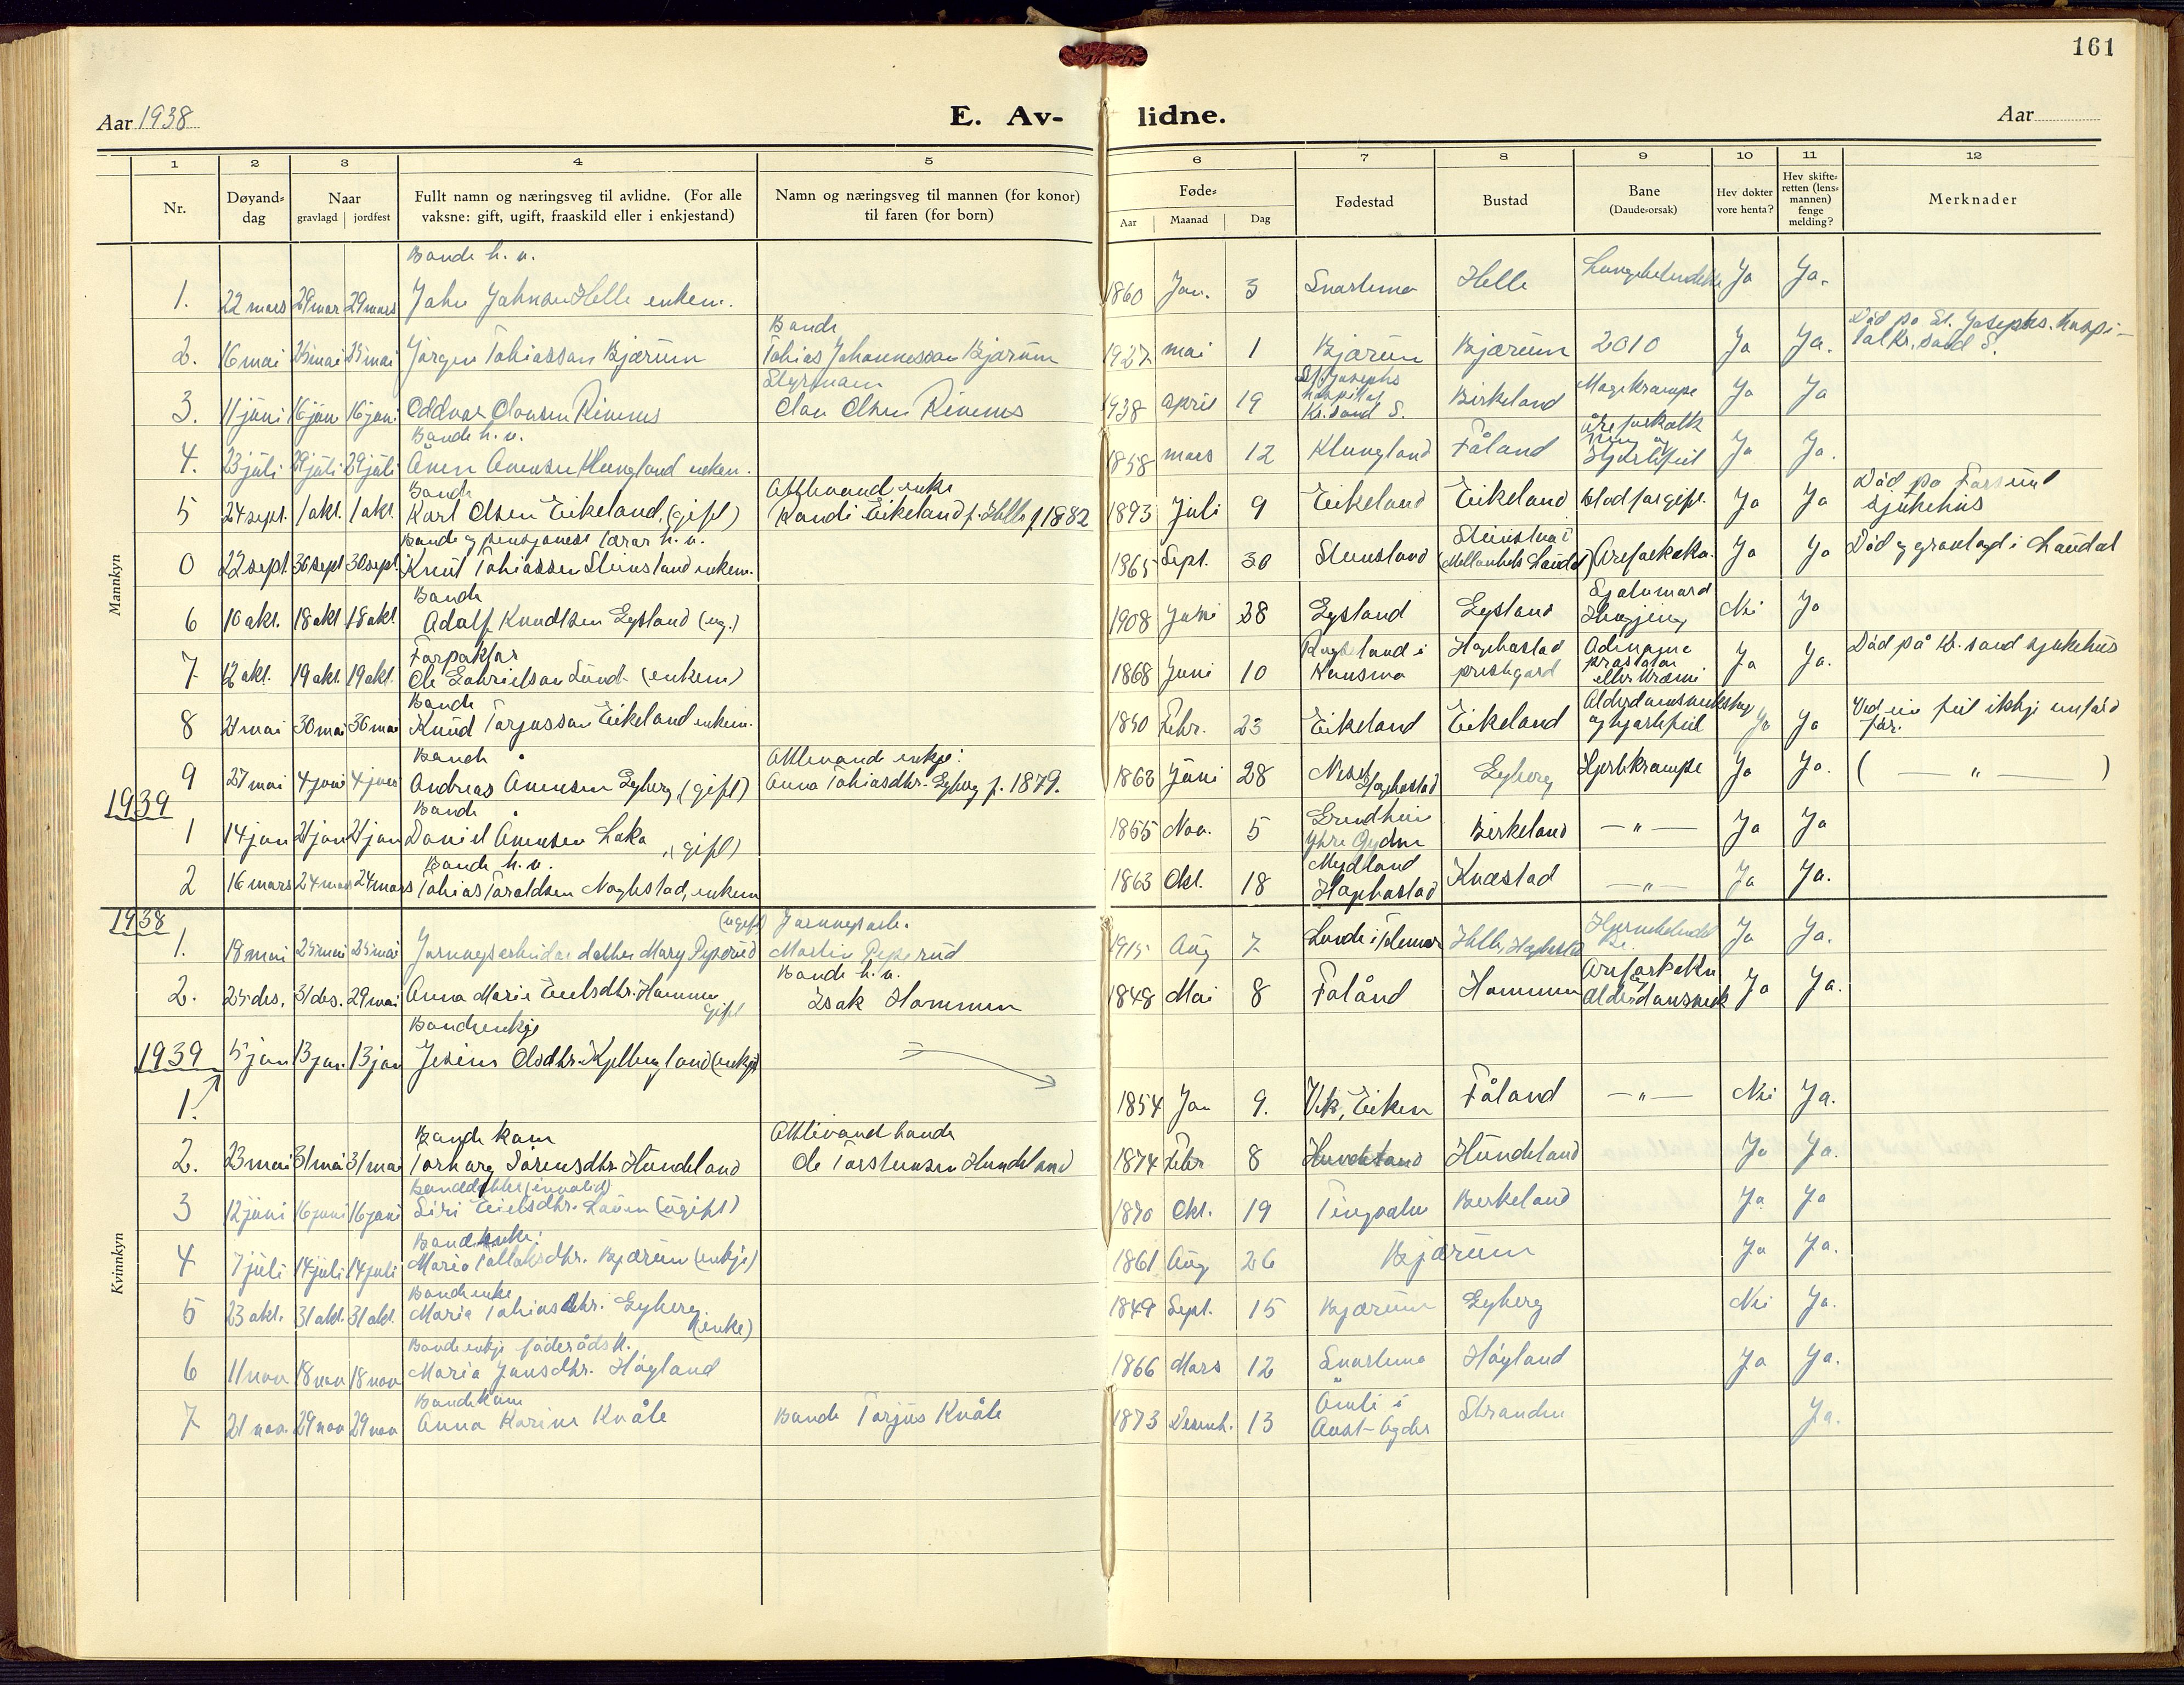 161
Aar 1938
E. Av-lidne.
Aar
1 2 3 4 5 6 7 8 9 10 11 12
Nr.
Døyand-dag
Naar
gravlagd | jordfest
Fullt namn og næringsveg til avlidne. (For alle vaksne: gift, ugift, fraaskild eller i enkjestand)
Namn og næringsveg til mannen (for konor) til faren (for born)
Føde-
Aar Maanad Dag
Fødestad
Bustad
Bane (Daude-orsak)
Hev dokter vore henta?
Hev skifte-retten (lens-mannen) fenge melding?
Merknader
Mankyn
Bonde h. v.
1. 22 mars 29 mar 29 mars John Johnsen Helle enkem. 1860 Jan. 3 Snartemo Helle Ja Ja.
Bonde
Død på St. Josephs hospi-
2. 16 mai 25 mai 25 mai Jørgen Tobiassen Bjærum Tobias Johannessen Bjærum 1927 mai 1 Bjærum Bjærum 2010 Ja Ja. tal Kr.sand S.
Styrmann
St. Josephs hospital
3. 11 juni 16 juni 16 juni Oddvar Olausen Rivenes Olau Olsen Rivenes 1938 april 19 Kr.sand S. Birkeland Magekrampe Ja Ja
Bonde h. v.
4. 23 juli 29 juli 29 juli Ånen Ånensen Klungland enkem. 1858 mars 12 Klungland Fåland åreforkalkning og Hjertefeil Ja Ja.
Bonde
Attlevande enke
Død på Farsund
5 24 sept. 1 okt. 1 okt. Karl Olsen Eikeland, (gift) Randi Eikeland f. Helle f 1882 1893 Juli 9 Eikeland Eikeland Blodforgift. Ja Ja sjukehus
Bonde og pensjonert lærar h. v.
0 22 sept. 30 sept 30 sept. Knut Tobiassen Steinsland enkem. 1865 Sept. 30 Steinsland Ja Ja Død og gravlagd i Laudal
Bonde
6 10 okt. 18 okt 18 okt. Adolf Knudtsen Eysland (ug.) 1908 Juni 28 Eysland Eysland Sjølvmord Hengjing Nei Ja
Forpaktar
7 12 okt. 19 okt. 19 okt. Ole Gabrielsen Lund (enkem) 1868 Juni 10 Hægbostad prestgard Ja Ja. Død på Kr.sand sjukehus
Bonde
8 21 mai 30 mai 30 mai Knud Torjussen Eikeland enkem. 1850 Febr. 23 Eikeland Eikeland og hjertefeil Ja Ja Ved ein feil ikkje innførd før.
Bonde
Attlevande enkje:
9 27 mai 4 juni 4 juni Andreas Ånensen Eyberg (gift) Anna Tobiasdtr. Eyberg f. 1879. 1863 Juni 28 Hægbostad Eyberg Hjertekrampe Ja Ja. ( — " — )
1939
Bonde
1 14 jan 21 jan 21 jan Daniel Ånensen Laka (gift) 1855 Nov. 5 Birkeland — " — Ja Ja
Bonde h. v.
2 16 mars 24 mars 24 mars Tobias Taraldsen enkem 1863 Okt. 18 Mydland Hægbostad Knæstad — " — Ja Ja.
Kvinnkyn
1938
(ugift) Jarnvegsarb.
1. 18 mai 25 mai 25 mai Jarnvegsarbeidar dotter Mary Peperud Martin Peperud 1915 Aug 7 Lunde i Telemark Helle, Hægbostad Ja Ja.
Bonde h. v.
2. 25 des. 31 des. 29 mai Anna Marie Hommen gift Isak Hommen 1848 Mai 8 Fåland Hommen Ja Ja.
Bondeenkje
1939 5 jan 13 jan. 13 jan
1. 1854 Jan 9. Vik, Eiken Fåland — " — Nei Ja.
Bonde kone
Attlevande bonde
2. 23 mai 31 mai 31 mai Torborg Sørensdtr. Hundeland Ole Torsteinsen Hundeland 1874 Febr 8 Hundeland Hundeland Ja Ja.
Bondedotter (invalid)
3 12 juni 16 juni 16 juni Siri Eielsdtr. Lauen (ugift) 1870 Okt. 19 Tingvatn Birkeland Ja Ja
Bondeenke:
4 7 juli 14 juli 14 juli Maria Tallaksdtr. Bjærum (enkje) 1861 Aug 26 Bjærum Ja Ja.
Bondeenke
5 23 okt. 31 okt. 31 okt. Maria Tobiasdtr. Eyberg (enke) 1849 Sept. 15 Bjærum Eyberg Nei Ja.
Bondeenkje føderådsk.
6 11 nov 18 nov 18 nov Maria Jensdtr. Høyland 1866 Mars 12 Snartemo Høyland Ja Ja.
Bondekone
7 21 nov. 29 nov 29 nov Anna Karine Kvåle Bonde Torjus Kvåle 1873 Desemb. 13 Åmli i Aust-Agder Stranden Ja.